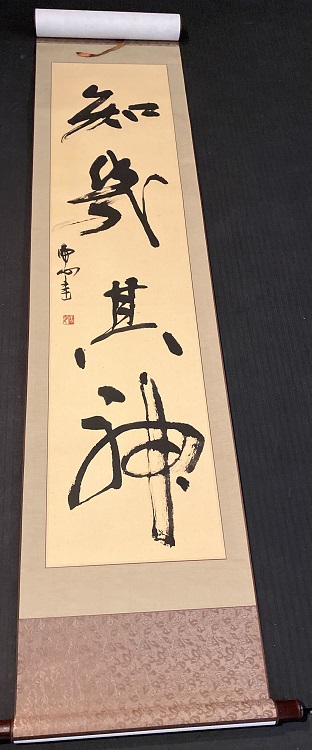 知幾其神